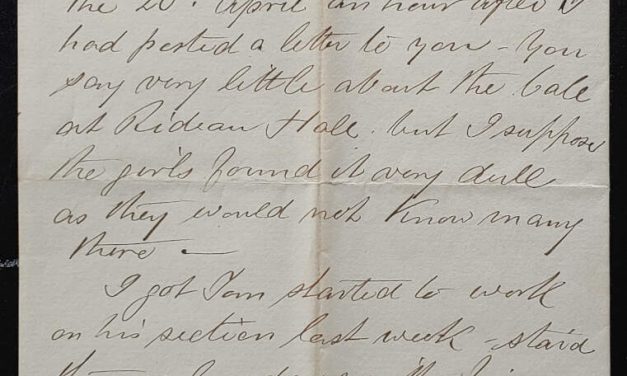 the 20th. April an hour after I
had posted a letter to you - You
say very little about the ball
at Rideau Hall. but I suppose
the girls found it very dull
as they would not Know many
there —
I got Tom started to work
on his section last week - staid